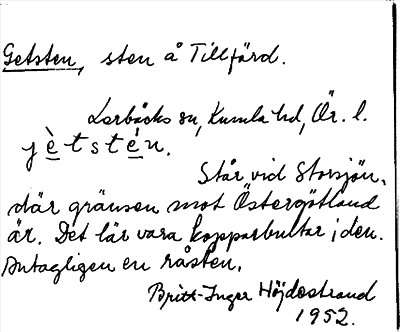 Getsten, sten å Tillfärd.
Lerbäcks sn, Kumla hd, Ör. l.
jètstén.
Står vid Storsjön,
där gränsen mot Östergötland
är. Det lär vara kopparbultar i den.
Antagligen en råsten.
Britt-Inger Höjdestrand
1952.